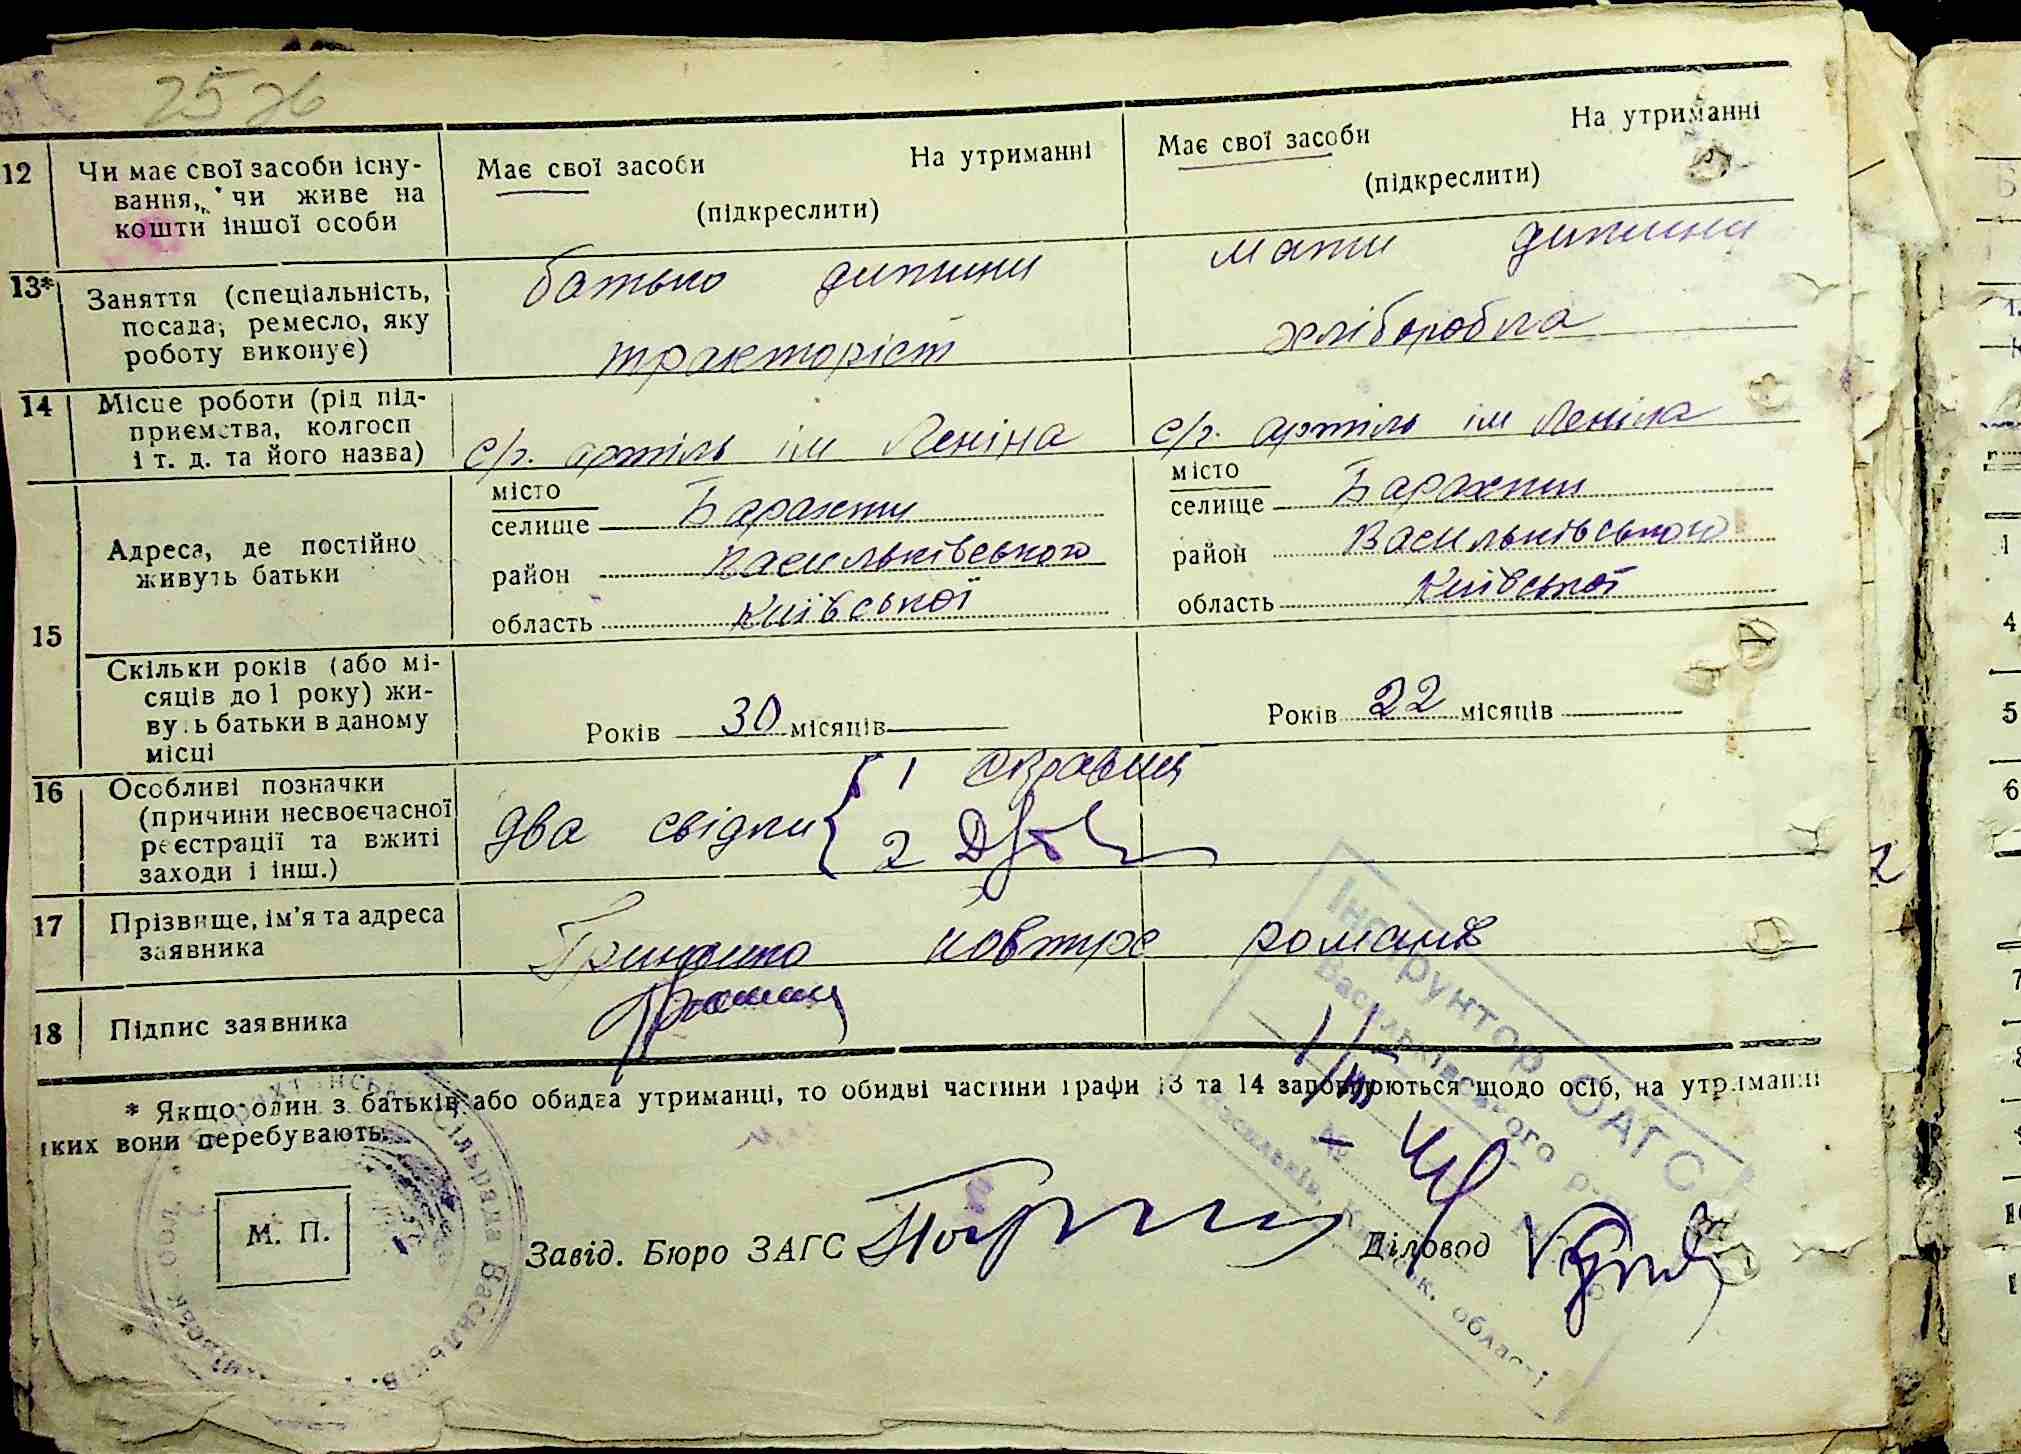 25 76
12 Чи має свої засоби існу-
вання, чи живе на
кошти іншої особи
Має свої засоби На утриманні
(підкреслити)
Має свої засоби На утриманні
(підкреслити)
13* Заняття (спеціальність,
посада, ремесло, яку
роботу виконує)
батько дитини
тракторіст
мати дитини
хліборобка
14 Місце роботи (рід під-
приємства, колгосп
і т. д. та його назва)
с/г. артіль ім Леніна
с/г. артіль ім Леніна
15 Адреса, де постійно
живуть батьки
місто
селище Барахти
район Васильківського
область Київської
місто
селище Барахти
район Васильківського
область Київської
Скільки років (або мі-
сяців до 1 року) жи-
вуть батьки в даному
місці
Років 30 місяців
Років 22 місяців
16 Особливі позначки
(причини несвоєчасної
реєстрації та вжиті
заходи і інш.)
два свідки
1
2
17 Прізвище, ім'я та адреса
заявника
романів
18 Підпис заявника
* Якщо один з батьків або обидва утриманці, то обидві частини графи 13 та 14 заповнюються щодо осіб, на утриманні
яких вони перебувають.
М. П.
Завід. Бюро ЗАГС
Діловод
Інструктор ОАГС
Васильківського р-ну
№
Васильків, Київськ. області
сільрада Васильків.